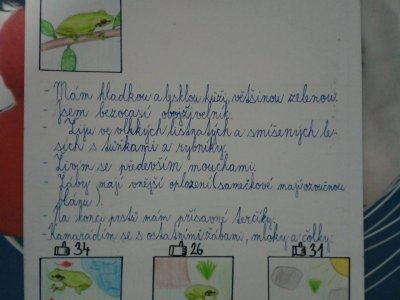 - Mám hladkou a lesklou kůži, většinou zelenou.
- Jsem bezocasí obojživelník.
- Žiju ve vlhkých listnatých a smíšených le-
sích s tůňkami a rybníky.
- Živím se především mouchami.
- Žáby mají vnější oplození (samečkové mají ozvučnou
blánu).
- Na konci prstů mám přísavné terčíky.
Kamarádím se s ostatními žábami, mloky a čolky.
34 26 31